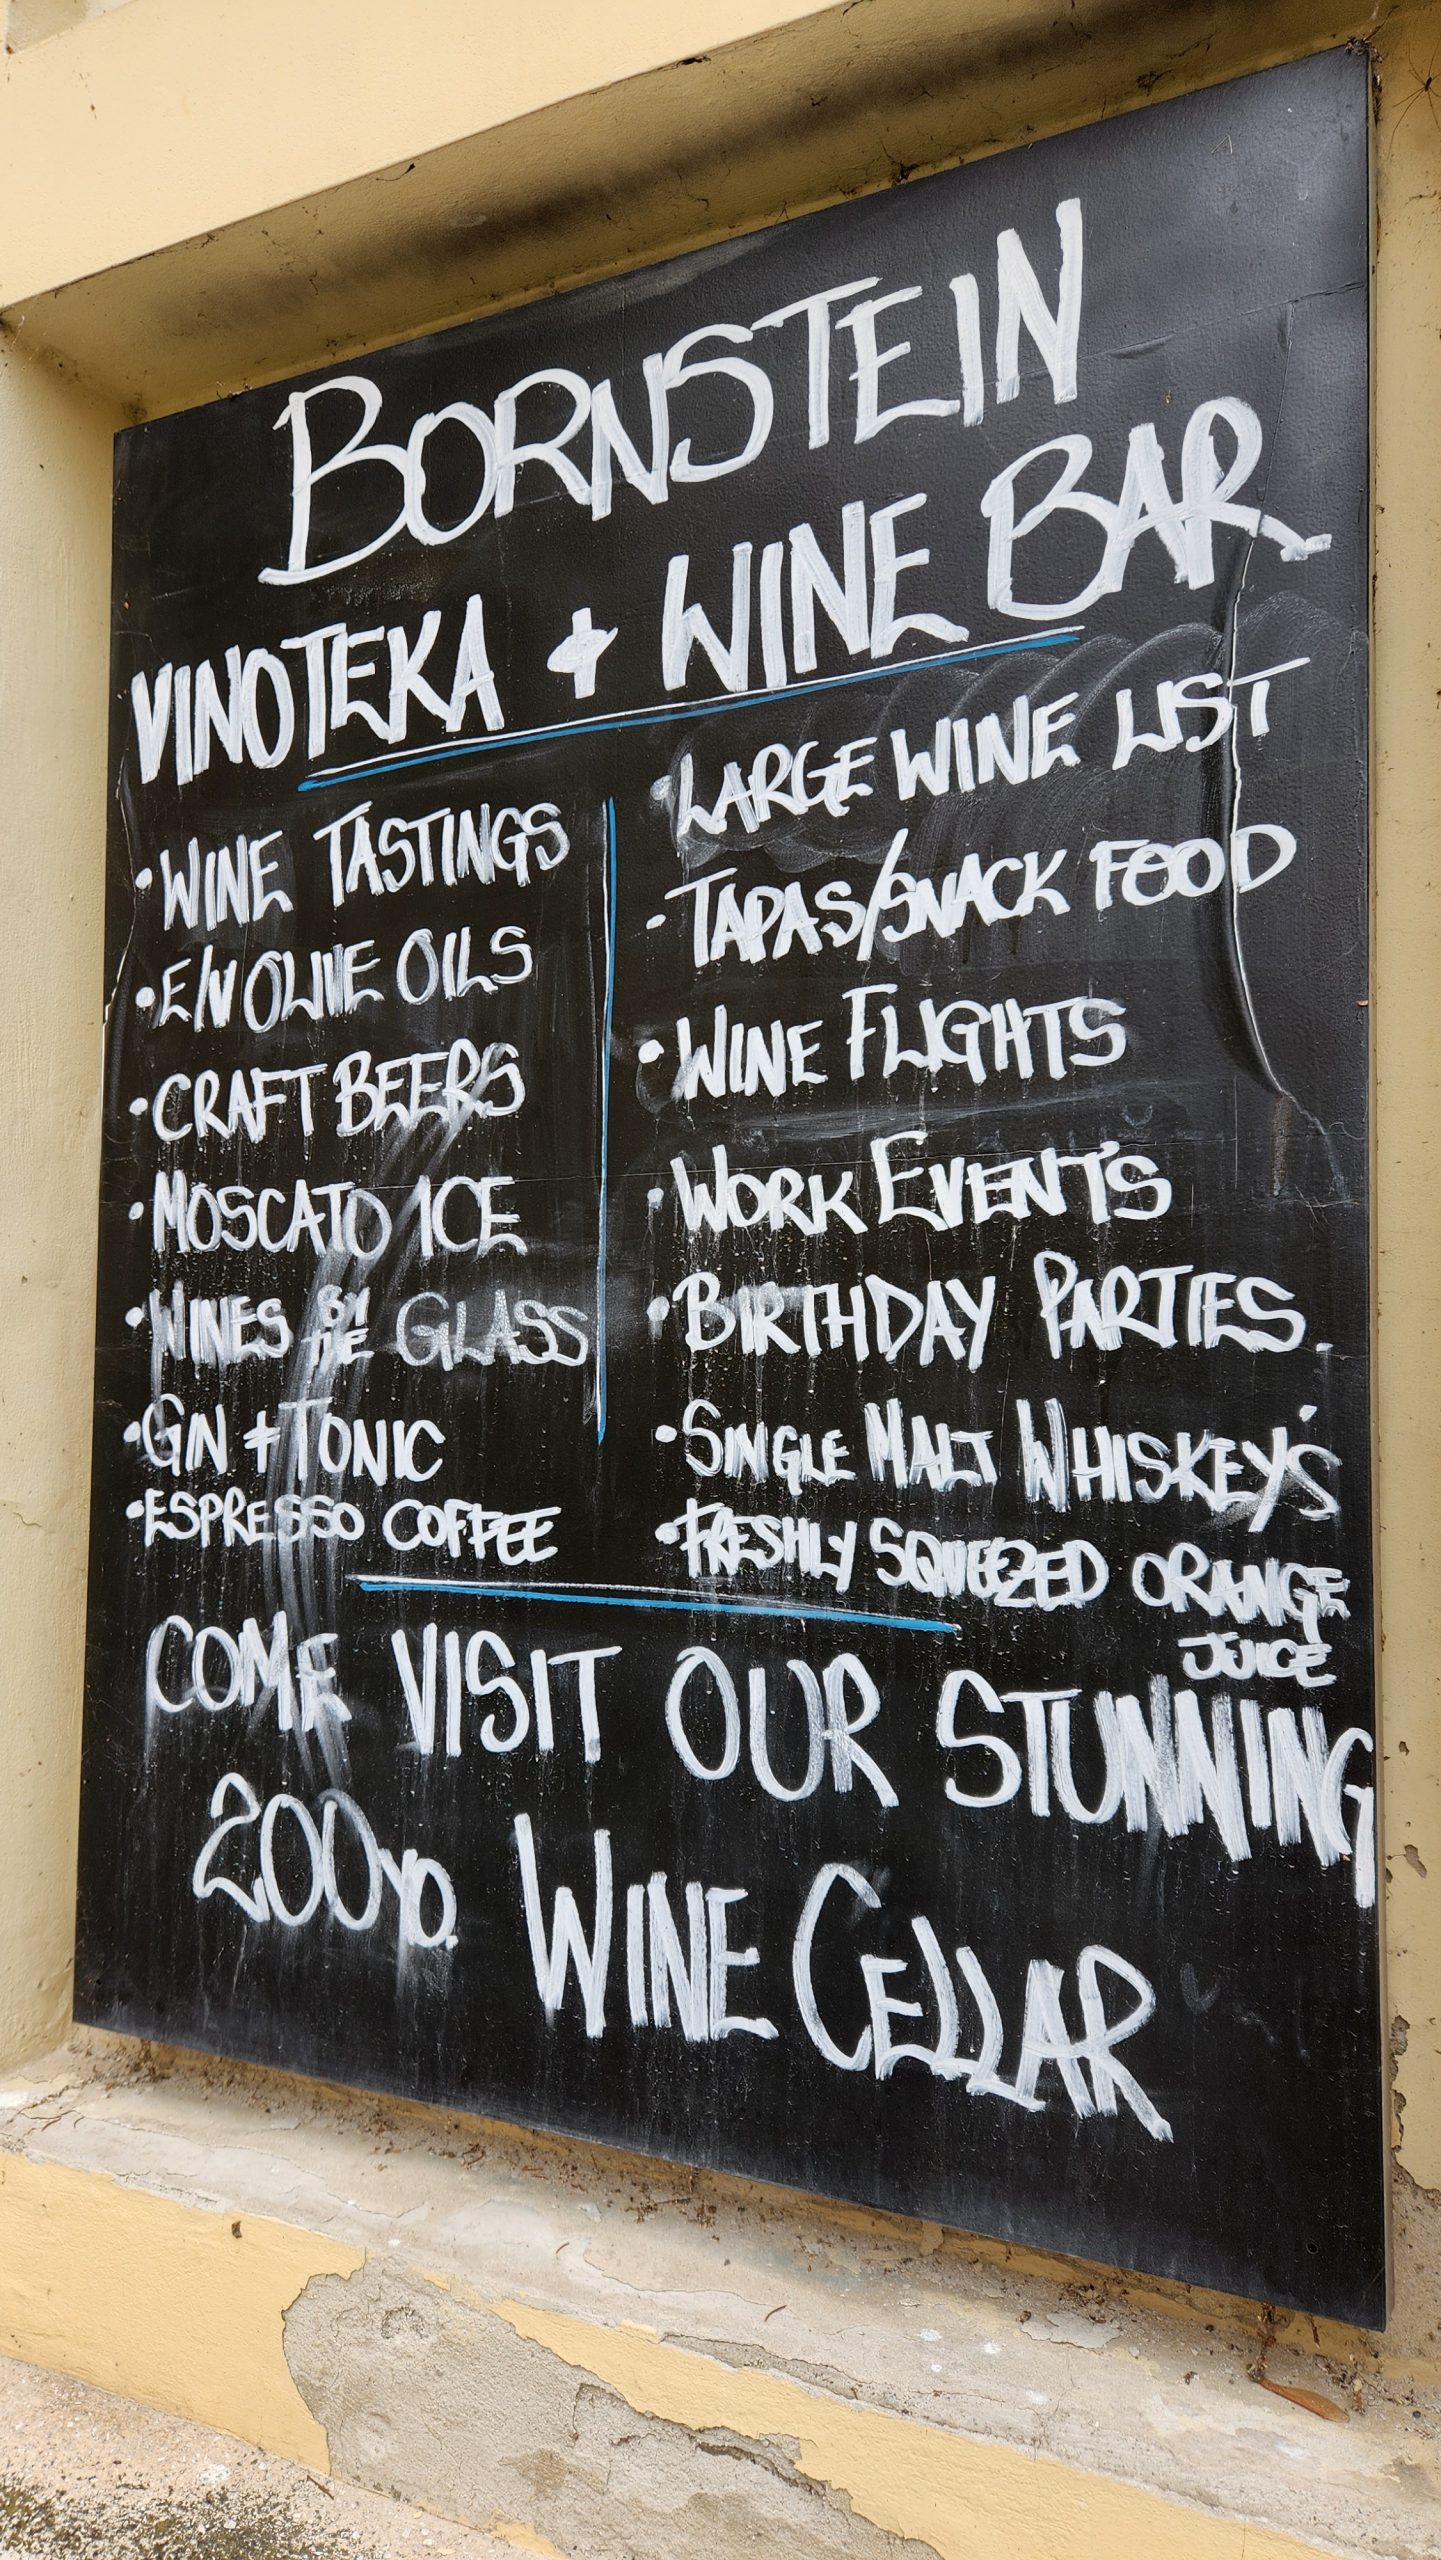 BORNSTEIN
VINOTEKA + WINE BAR
• WINE TASTINGS
• E/V OLIVE OILS
• CRAFT BEERS
• MOSCATO ICE
• WINES BY THE GLASS
• GIN + TONIC
• ESPRESSO COFFEE
• LARGE WINE LIST
• TAPAS/SNACK FOOD
• WINE FLIGHTS
• WORK EVENT'S
• BIRTHDAY PARTIES.
• SINGLE MALT WHISKEY'S
• FRESHLY SQUEEZED ORANGE
JUICE
COME VISIT OUR STUNNING
200 YO. WINE CELLAR